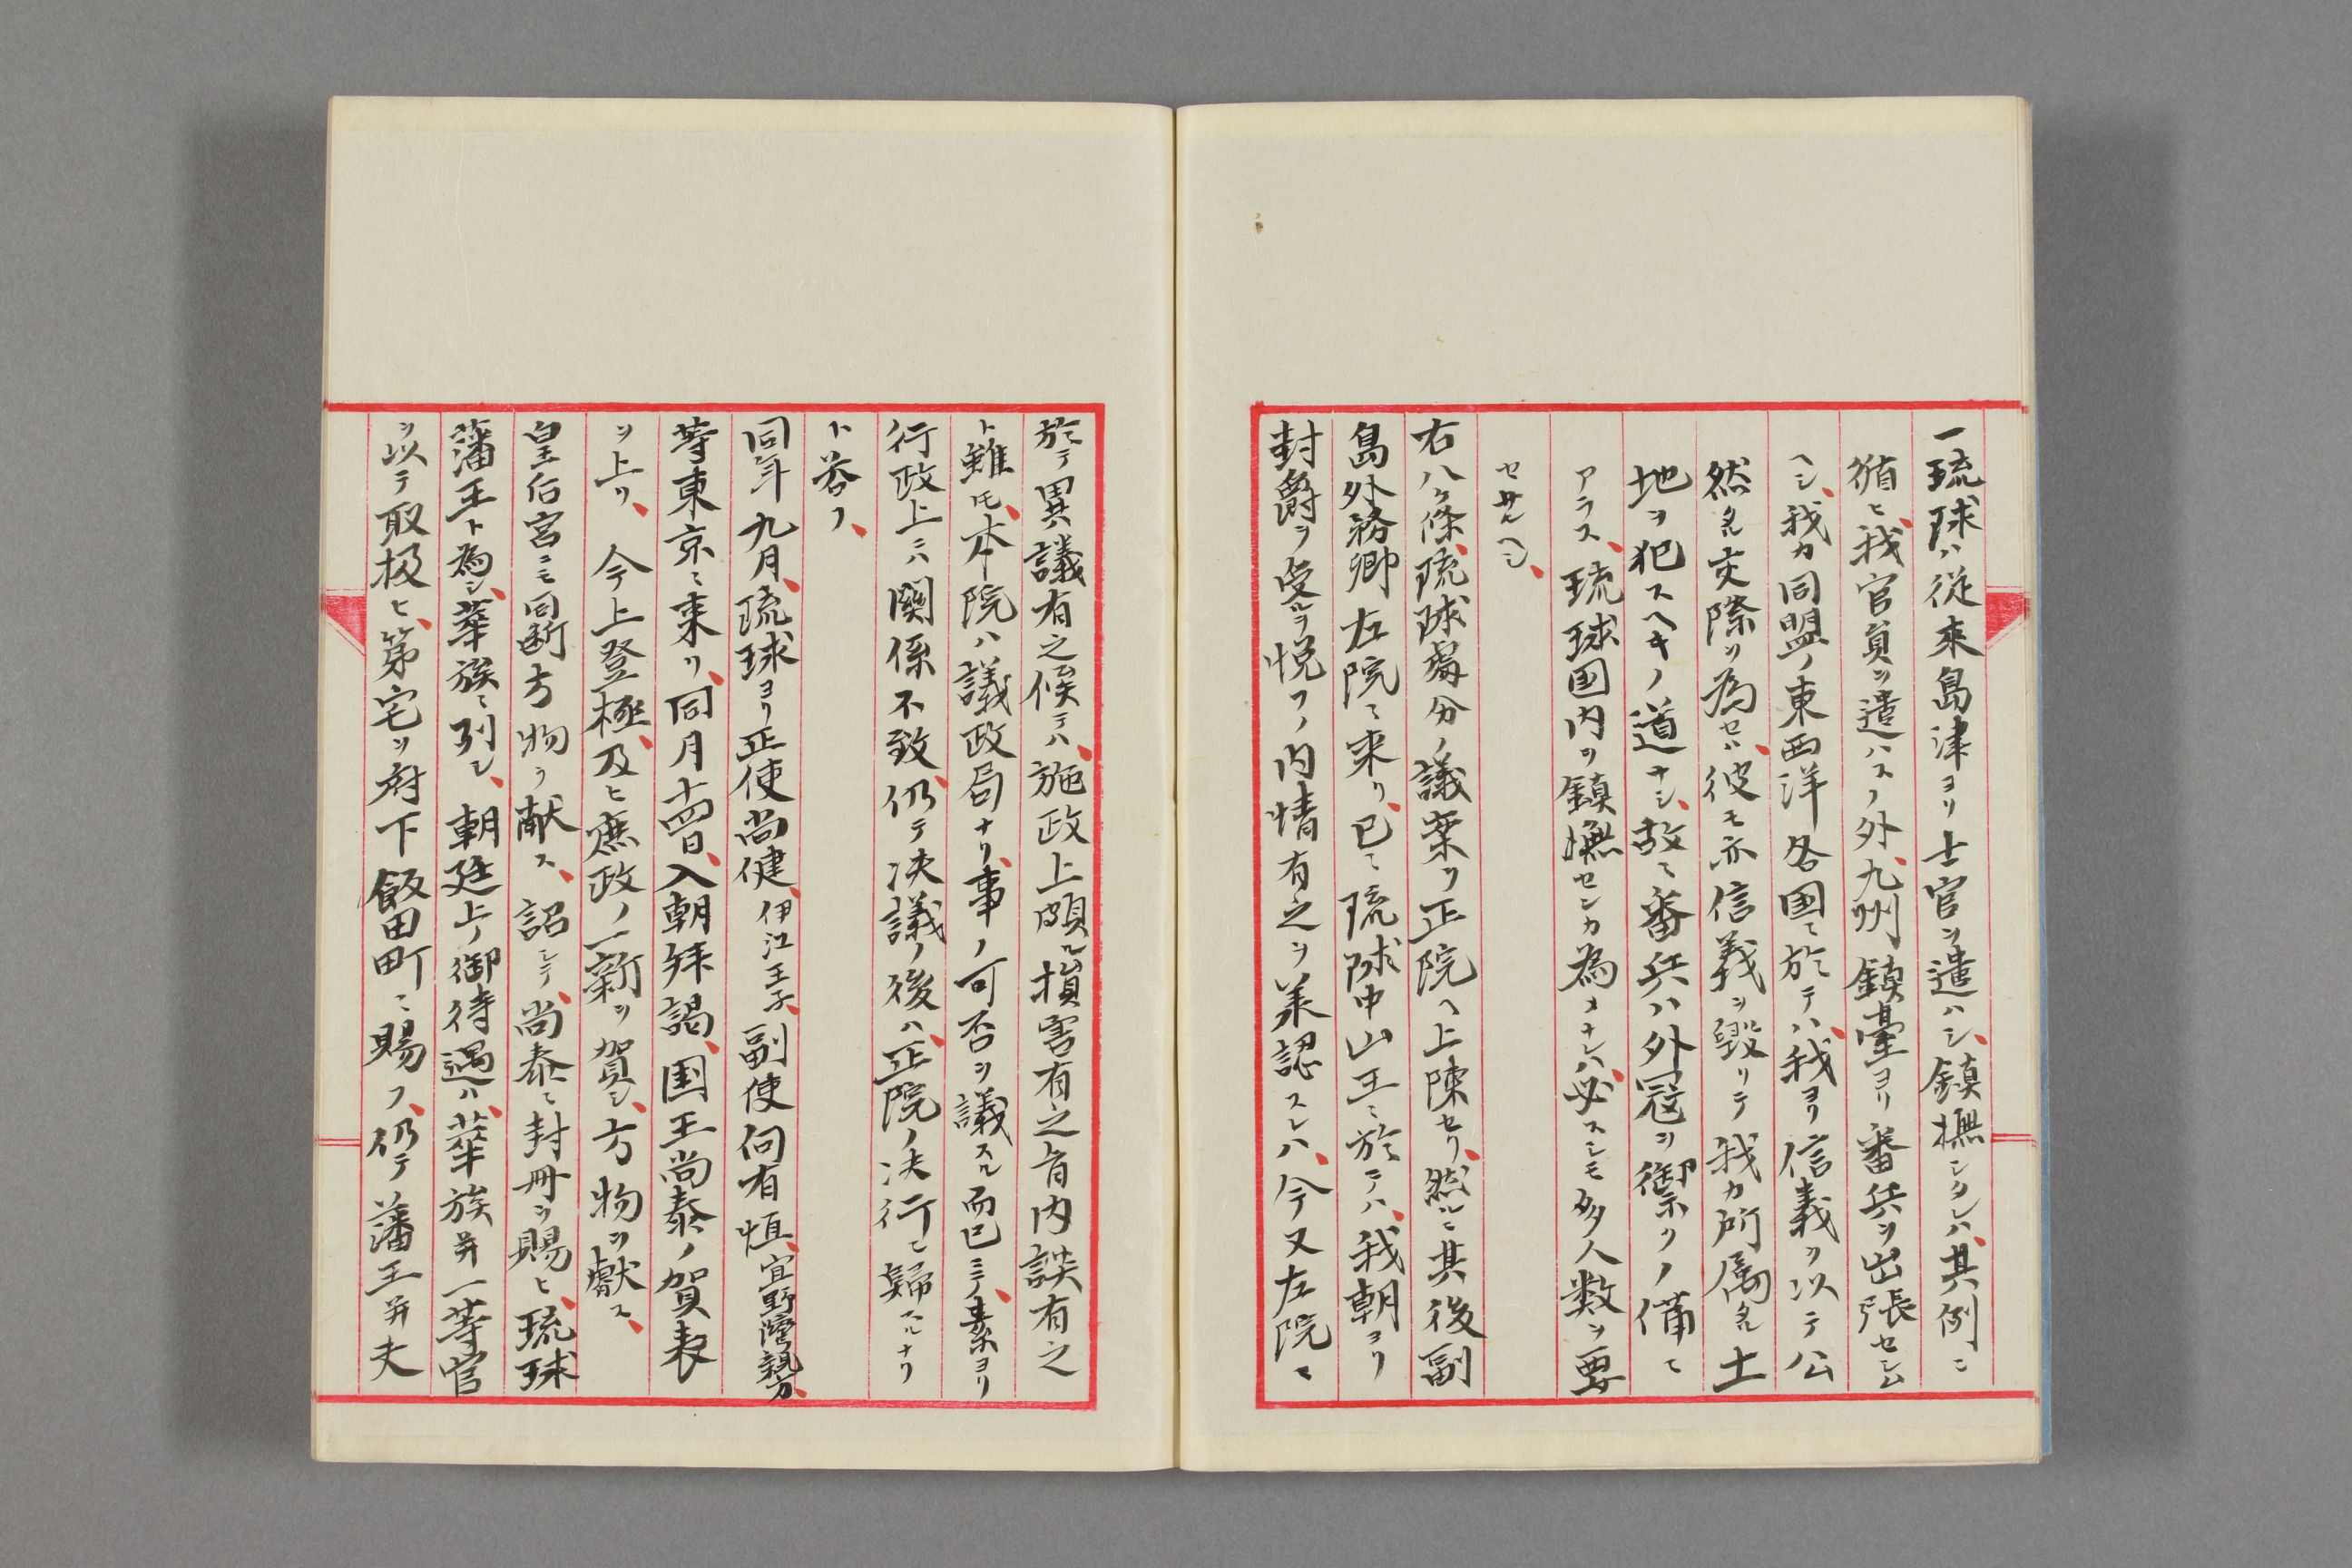 一琉球ハ従来島津ヨリ士官ヲ遣ハシ、鎮撫シタレハ、其例ニ
循ヒ、我官員ヲ遣ハスノ外、九州鎮臺ヨリ番兵ヲ出張セシム
ヘシ、我カ同盟ノ東西洋各国ニ於テハ、我ヨリ信義ヲ以テ公
然タル交際ヲ為セハ、彼モ亦信義ヲ毀リテ我カ所属タル土
地ヲ犯スヘキノ道ナシ、故ニ番兵ハ外冦ヲ禦クノ備ニ
アラス、琉球国内ヲ鎮撫センカ為メナレハ、必スシモ多人数ヲ要
セサルヘシ、
右八ケ條、琉球處分ノ議案ヲ正院ヘ上陳セリ、然ルニ其後副
島外務卿左院ニ来リ、已ニ琉球中山王ニ於テハ、我朝ヨリ
封爵ヲ受ルヲ悦フノ内情有之ヲ羕認スレハ、今又左院ニ
於テ異議有之候テハ、施政上頗ル損害有之旨内談有之
ト雖ㇳモ、本院ハ議政局ナリ、事ノ可否ヲ議スル而已ニテ、素ヨリ
行政上ニハ關係不致、仍テ决議ノ後ハ、正院ノ决行ニ歸スルナリ
ト荅フ、
同年九月、琉球ヨリ正使尚健、伊江王子、副使向有恒、宜野灣親方、
等東京ニ来リ、同月十四日、入朝拜謁、国王尚泰ノ賀表
ヲ上リ、今上登極、及ヒ庶政ノ一新ヲ賀シ、方物ヲ獻ス、
皇后宮ニモ同断方物ヲ献ス、詔シテ、尚泰ニ封冊ヲ賜ヒ、琉球
藩王ト為シ、華族ニ列シ、朝廷上ノ御待遇ハ、華族并一等官
ヲ以テ取扱ヒ、第宅ヲ府下飯田町ニ賜フ、仍テ藩王并夫